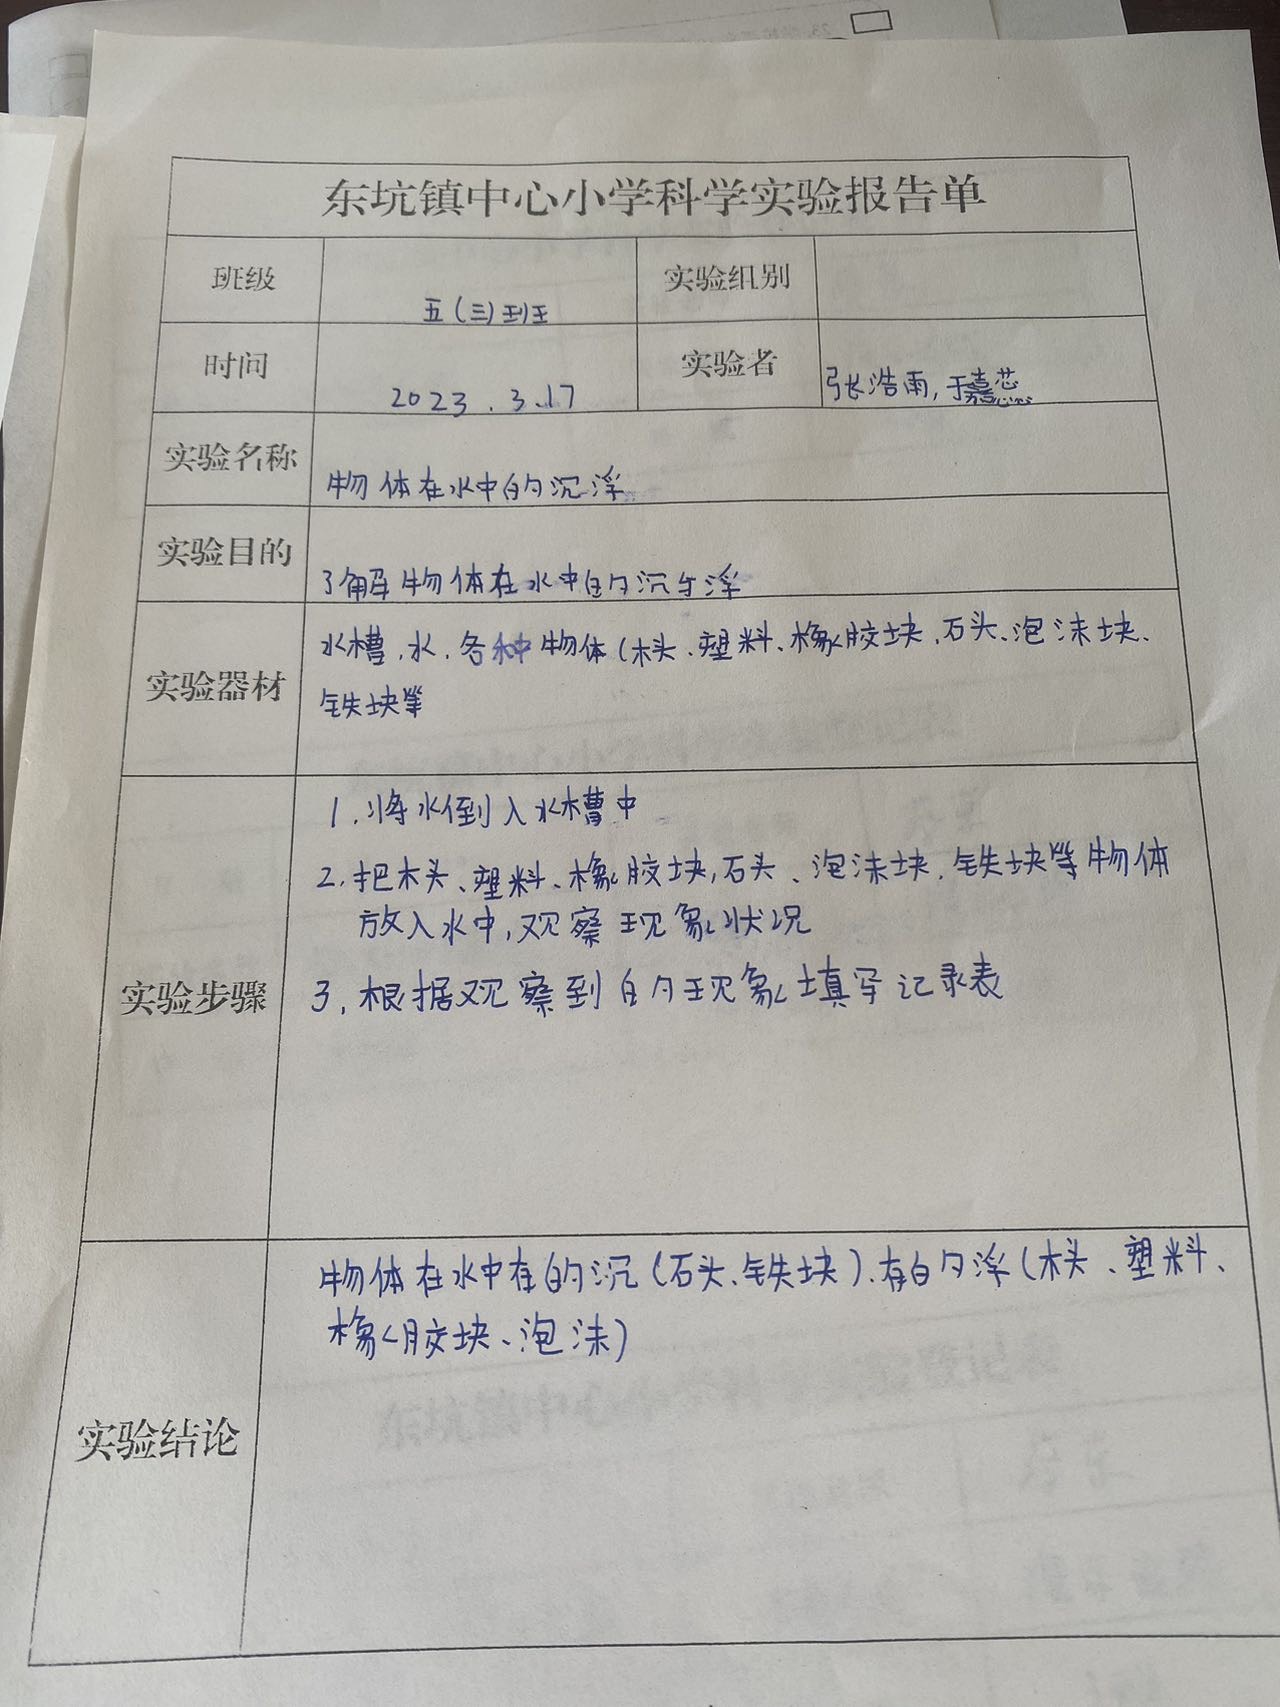 东坑镇中心小学科学实验报告单
班级 五(三)班 实验组别
时间 2023.3.17 实验者 张浩雨,于嘉蕊
实验名称 物体在水中的沉浮
实验目的 了解物体在水中的沉与浮
实验器材 水槽.水.各种物体(木头、塑料、橡胶块.石头、泡沫块、
铁块等
1.将水倒入水槽中
2.把木头、塑料、橡胶块,石头、泡沫块.铁块等物体
放入水中,观察现象状况
实验步骤 3.根据观察到的现象填写记录表
物体在水中有的沉(石头、铁块).有的浮(木头、塑料、
橡胶块、泡沫)
实验结论